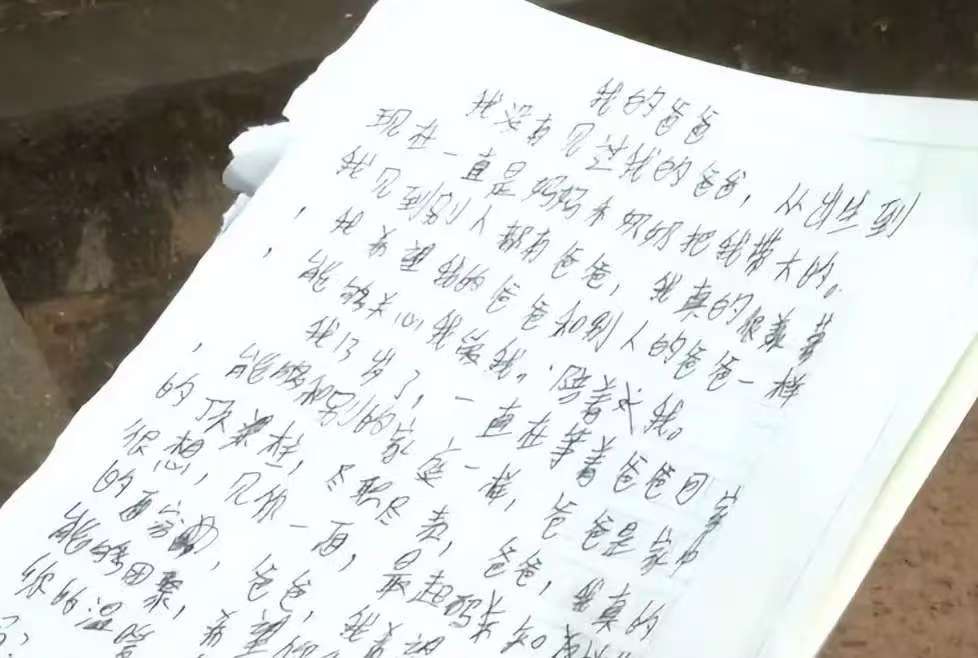 我的爸爸
我没有见过我的爸爸，从出生到
现在一直是妈妈和奶奶把我带大的。
我见到别人都有爸爸，我真的很羡慕
，我希望我的爸爸和别人的爸爸一样
，能够关心我爱我。陪着我。
我13岁了，一直在等着爸爸回家
，能够和别的家庭一样，爸爸是家中
的顶梁柱，尽职尽责，爸爸，我真的
很想，见你一面，最起码
的面容，爸爸，
能够回家，希望
你的温